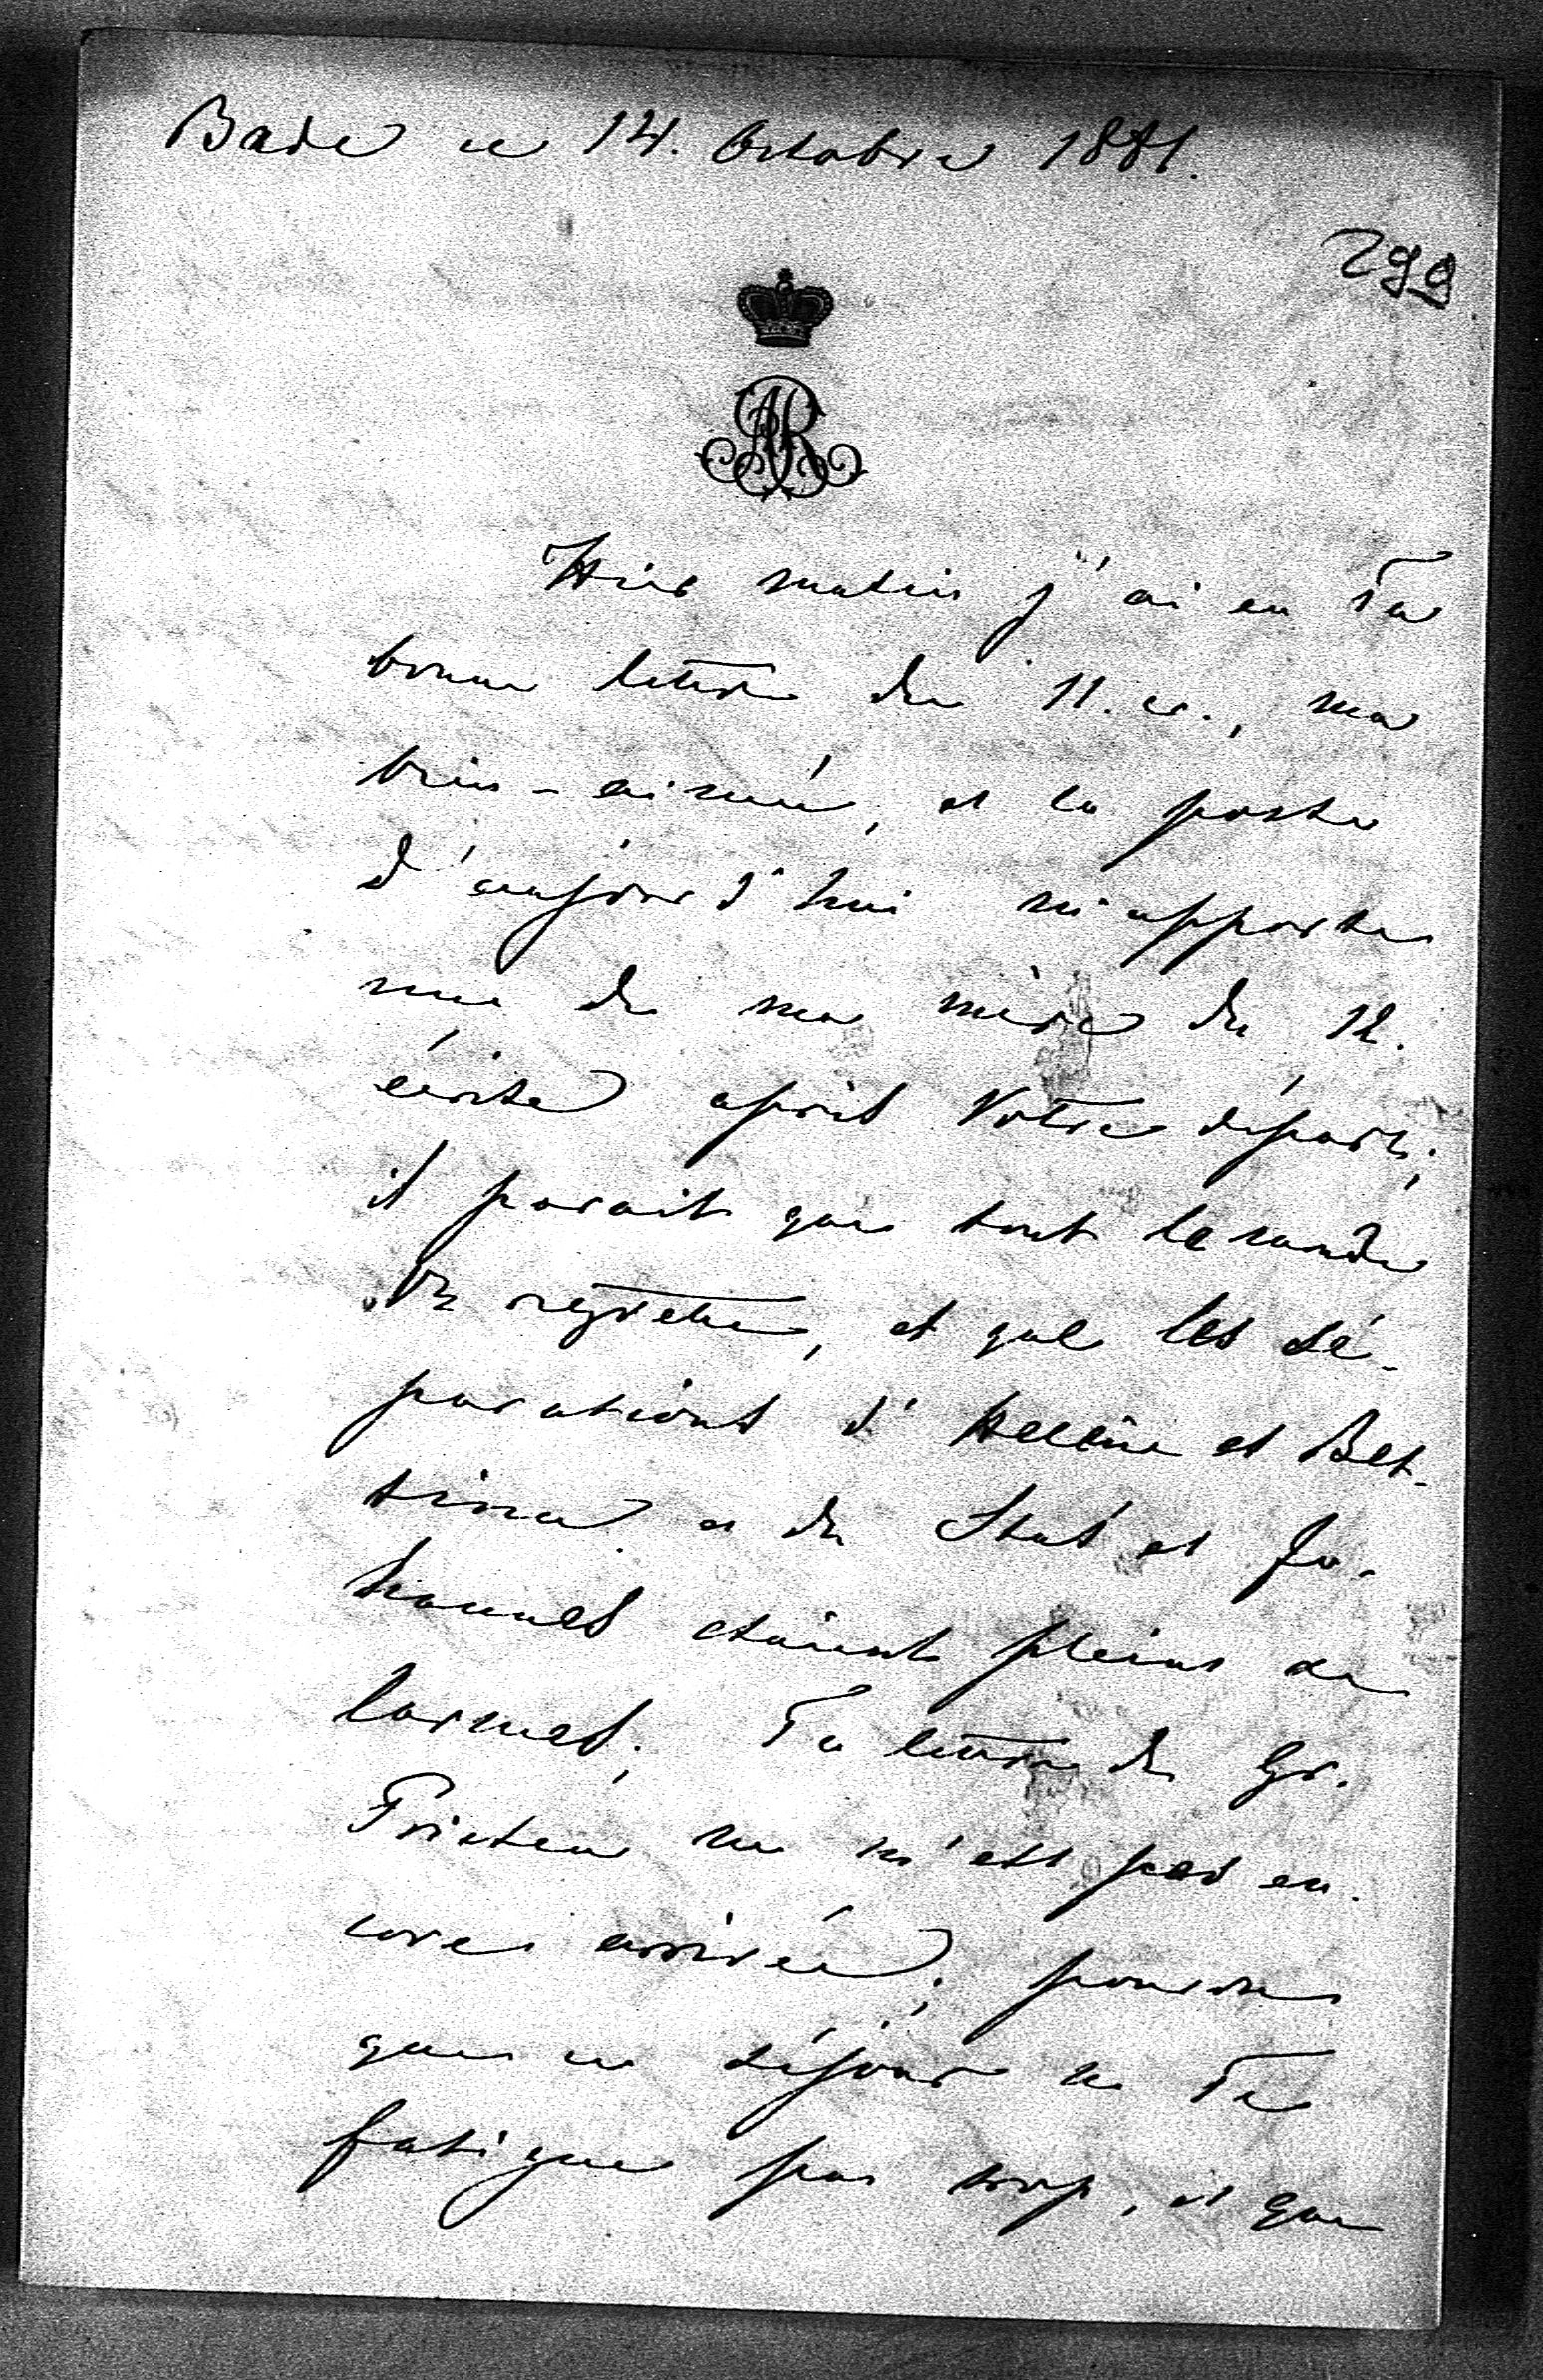 Bade ce 14. Octobre 1881.
299
AR
Hier matin j'ai eu Ta
bonne lettre du 11. cr., ma
bien-aimée, et la poste
d'aujourd'hui m'apporte
une de ma mère du 12.
écrite après Votre départ;
il parait que tout le monde
Vs regrette, et que les sé-
parations d'Hélène et Bet-
tina et de Stas et Jo-
hannes étaient pleins de
larmes. Ta lettre de Gr.
ne m'est pas en-
core arrivée; pourvu
que ce séjour ne Te
fatigue pas trop, et que